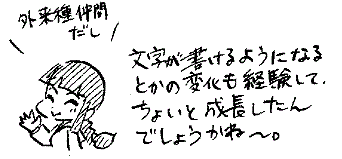 外来種仲間
だし
文字が書けるようになる
とかの変化も経験して、
ちょいと成長したん
でしょうかね〜。